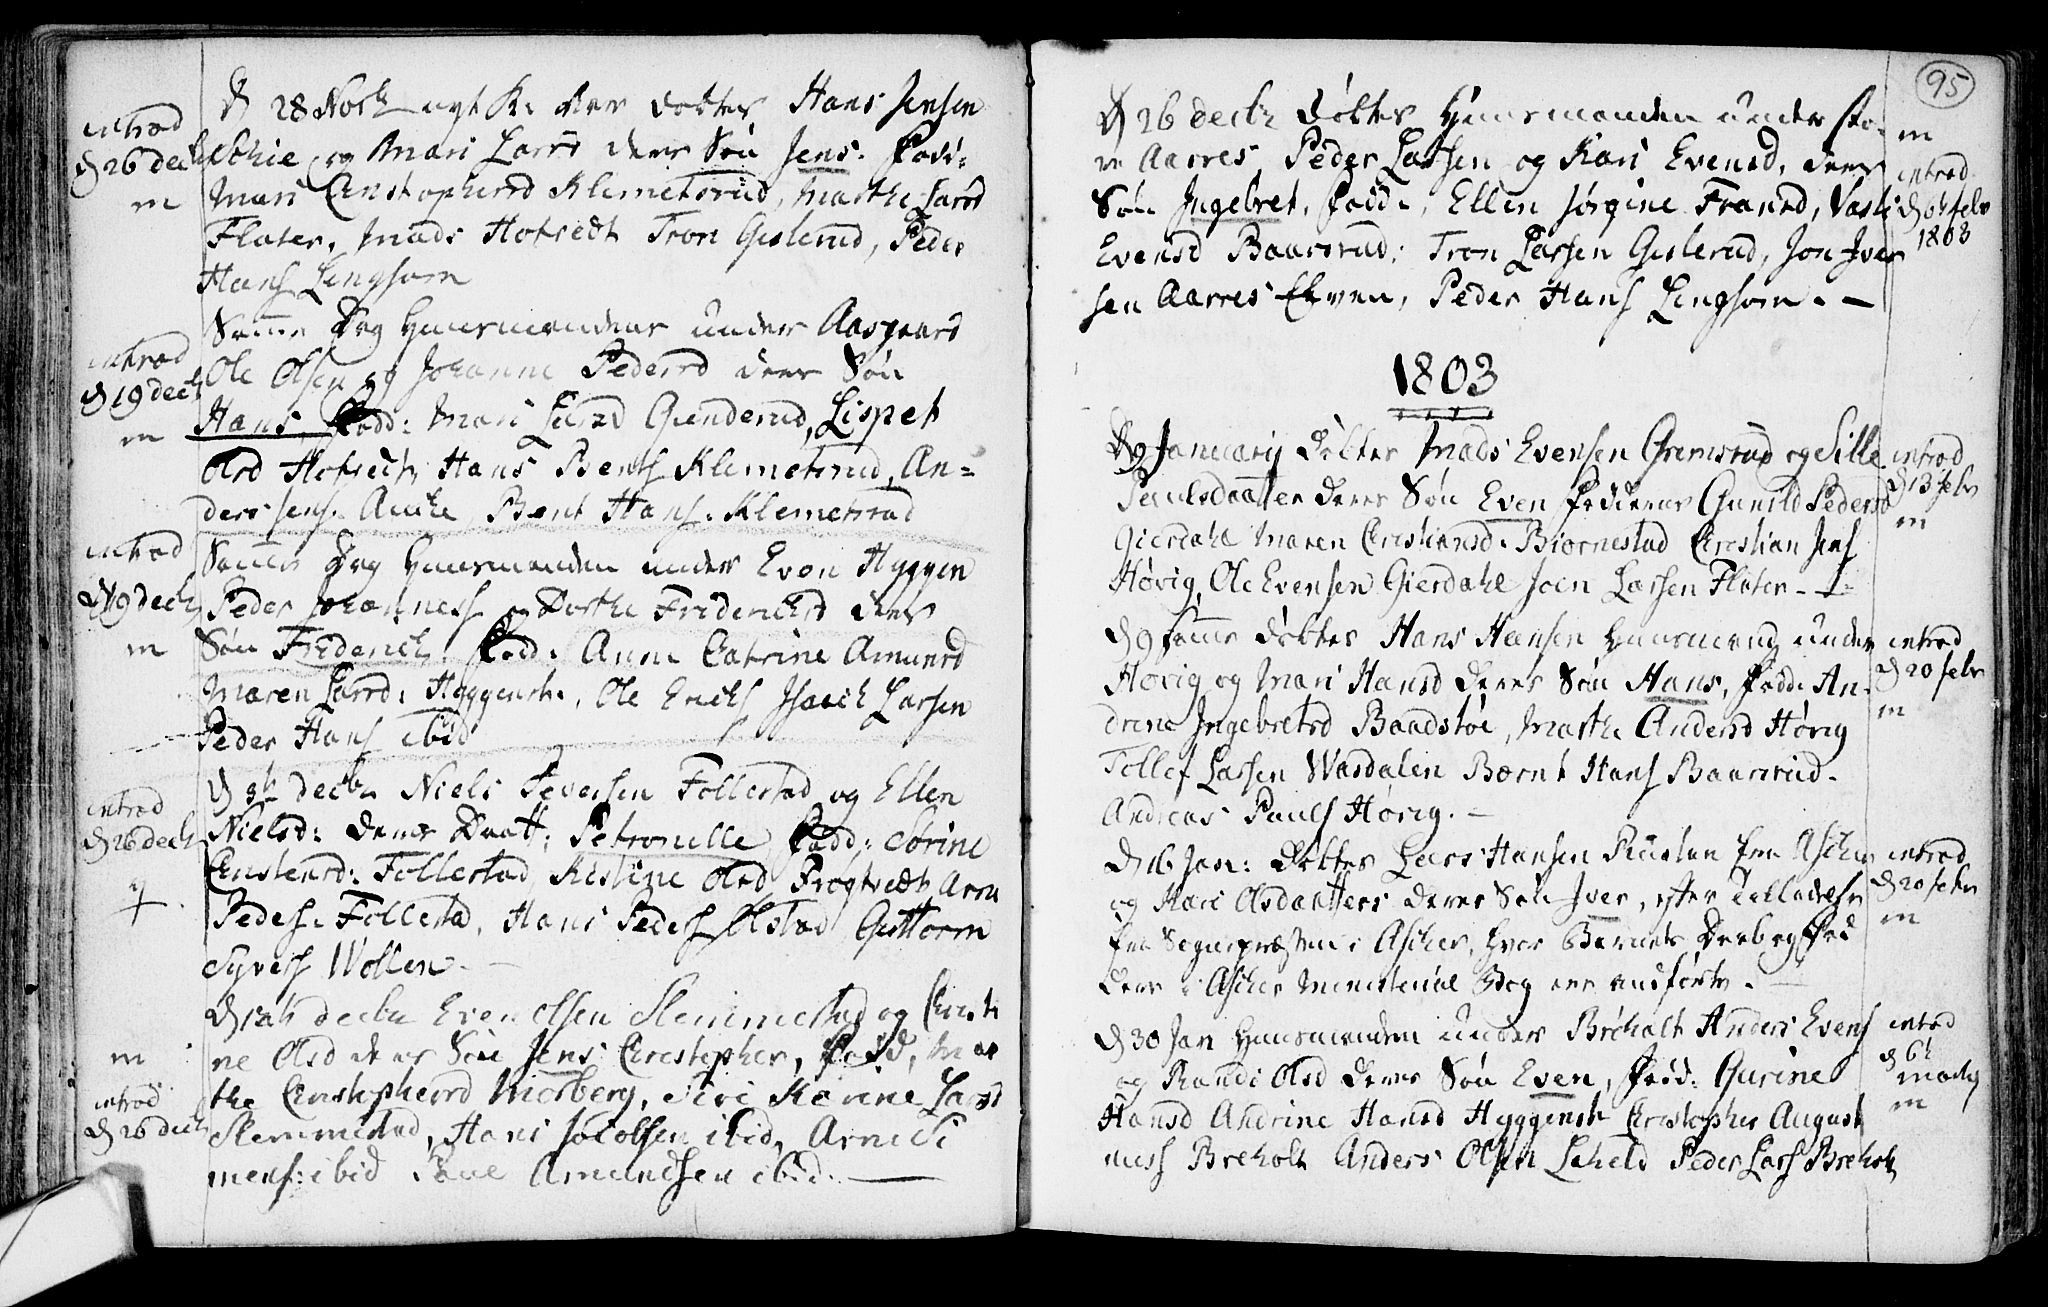 introd
d 26 decb
m
D 28 Novb nyt K: Aar døbtes Hans Jensen
Schie og Mari Larsd deres Søn Jens. Fadd:
Mari Christophersd Klemetsrud, Marthe Larsd
Flaten, Mads Hofsedt Tron Gislerud, Peder
Hans Lingsom
introd
d 19 decb
m
Samme Dag Huusmanden under Aasgaard
Ole Olsen og Johanne Pedersd deres Søn
Hans, Fadd: Mari Larsd Gunderud, Lispet
Olsd Hofsedt, Hans Bents Klemetsrud, An-
ders Jens. Auche Bent Hans. Klemetsrud
introd
d 19 decb
m
Samme Dag Huusmanden under Even Hyggen
Peder Johanness og Dorthe Friderichsd deres
Søn Friderich. Fadd. Anne Catrine Amunsd
Maren Larsd: Hyggenst., Ole Erichs Isach Larsen
Peder Hans ibid
introd
d 26 decb
q
D 5t decbr Niels Seversen Follestad og Ellen
Nielsd: deres Daatt: Petronelle Fadd: Sørine
Christensd: Follestad, Kistine Olsd Frogsedt, Arne
Peders. Follestad, Hans Peders Olstad Guttorm
Syvers Wollen. —
m
introd
d 26 decb
D 12t decbr Even Olsen Slemmestad og Christi
ne Olsd deres Søn Jens Christopher, Fadd, Mar
the Christophersd Morberg, Siri Karine Larsd
Slemmestad, Hans Jocobsen ibid, Arne Si
mens: ibid Povel Amundsen ibid. —
95
D 26 decbr døbtes Huusmanden under Sto-
re Aarres Peder Larsen og Kari Evensd, deres
Søn Ingebret, Fadd., Ellen Jørgine Fransd, Vasti
Evensd Baarsrud, Tron Larsen Gislerud, Jon Iver
sen Aarres Eie, Peder Hans Lingsom. —
m
introd
d 6t febr
1803
1803
D 9 Januarij døbtes Mads Evensen Gremsrud og Sille
Paulsdaatter deres Søn Even Fadderne Gunild Pedersd
Gierdahl Maren Christiansd. Biørnestad Christian Jens
Høvig, Ole Evensen Gierdahl Joen Larsen Flaten. —
introd
d 13 febr
m
D 9 samme døbtes Hans Hansen Huusmand under
Høvig og Mari Hansd deres Søn Hans, Fadd. An-
drine Ingebretsd Baadstøe, Marthe Andersd Høvig
Tollef Larsen Wasdalen Bernt Hans Baarsrud.
Andreas Pauls Høvig. —
introd
d 20 febr
m
D 16 Jan: døbtes Lars Hansen Rustan fra Ascher
og Kari Olsdaatters deres Søn Iver, efter Tilladelse
fra Sognepræsten i Ascher, hvor Barnets Daab og Fad
dere i Ascher Ministerial Bog ere indførte. —
introd
d 20 febr
m
D 30 Jan Huusmanden under Breholt Anders Evens
og Randi Olsd deres Søn Even, Fadd: Gurine
Hansd Andrine Hansd Hyggenst Christopher August
nuss Breholt Anders Olsen Leheld Peder Lars Breholt
introd
d 6t
martz
m